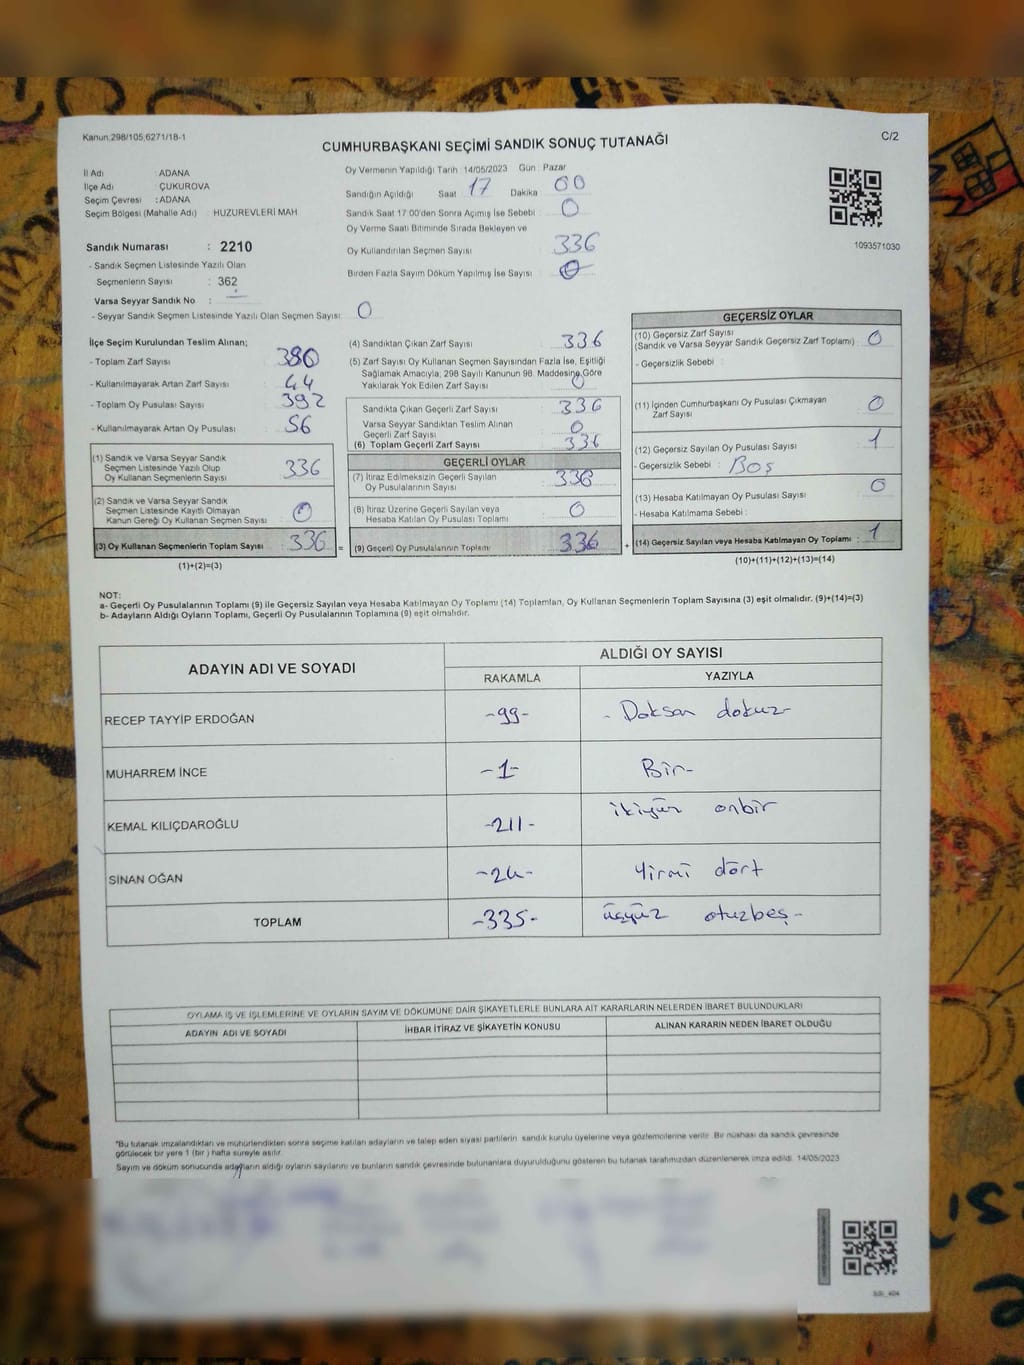 Kanun:298/105,6271/18-1
C/2
CUMHURBAŞKANI SEÇİMİ SANDIK SONUÇ TUTANAĞI
İl Adı : ADANA
İlçe Adı : ÇUKUROVA
Seçim Çevresi : ADANA
Seçim Bölgesi (Mahalle Adı) : HUZUREVLERİ MAH
Sandık Numarası : 2210
- Sandık Seçmen Listesinde Yazılı Olan
Seçmenlerin Sayısı : 362
Varsa Seyyar Sandık No :
- Seyyar Sandık Seçmen Listesinde Yazılı Olan Seçmen Sayısı: 0
Oy Vermenin Yapıldığı Tarih 14/05/2023 Gün : Pazar
Sandığın Açıldığı Saat 17 Dakika 00
Sandık Saat 17:00'den Sonra Açımış İse Sebebi : 0
Oy Verme Saati Bitiminde Sırada Bekleyen ve
Oy Kullandırılan Seçmen Sayısı : 336
Birden Fazla Sayım Döküm Yapılmış İse Sayısı : 0
1093571030
İlçe Seçim Kurulundan Teslim Alınan;
- Toplam Zarf Sayısı : 380
- Kullanılmayarak Artan Zarf Sayısı : 44
- Toplam Oy Pusulası Sayısı : 392
- Kullanılmayarak Artan Oy Pusulası : 56
(1) Sandık ve Varsa Seyyar Sandık
Seçmen Listesinde Yazılı Olup
Oy Kullanan Seçmenlerin Sayısı : 336
(2) Sandık ve Varsa Seyyar Sandık
Seçmen Listesinde Kayıtlı Olmayan
Kanun Gereği Oy Kullanan Seçmen Sayısı : 0
(3) Oy Kullanan Seçmenlerin Toplam Sayısı : 336 =
(1)+(2)=(3)
(4) Sandıktan Çıkan Zarf Sayısı : 336
(5) Zarf Sayısı Oy Kullanan Seçmen Sayısından Fazla İse, Eşitliği
Sağlamak Amacıyla, 298 Sayılı Kanunun 98. Maddesine Göre
Yakılarak Yok Edilen Zarf Sayısı : 0
Sandıkta Çıkan Geçerli Zarf Sayısı : 336
Varsa Seyyar Sandıktan Teslim Alınan
Geçerli Zarf Sayısı : 0
(6) Toplam Geçerli Zarf Sayısı : 336
GEÇERLİ OYLAR
(7) İtiraz Edilmeksizin Geçerli Sayılan
Oy Pusulalarının Sayısı : 336
(8) İtiraz Üzerine Geçerli Sayılan veya
Hesaba Katılan Oy Pusulası Toplamı : 0
(9) Geçerli Oy Pusulalarının Toplamı : 336 +
GEÇERSİZ OYLAR
(10) Geçersiz Zarf Sayısı
(Sandık ve Varsa Seyyar Sandık Geçersiz Zarf Toplamı) : 0
- Geçersizlik Sebebi :
(11) İçinden Cumhurbaşkanı Oy Pusulası Çıkmayan
Zarf Sayısı : 0
(12) Geçersiz Sayılan Oy Pusulası Sayısı : 1
- Geçersizlik Sebebi : Boş
(13) Hesaba Katılmayan Oy Pusulası Sayısı : 0
- Hesaba Katılmama Sebebi :
(14) Geçersiz Sayılan veya Hesaba Katılmayan Oy Toplamı : 1
(10)+(11)+(12)+(13)=(14)
NOT:
a- Geçerli Oy Pusulalarının Toplamı (9) ile Geçersiz Sayılan veya Hesaba Katılmayan Oy Toplamı (14) Toplamları, Oy Kullanan Seçmenlerin Toplam Sayısına (3) eşit olmalıdır. (9)+(14)=(3)
b- Adayların Aldığı Oyların Toplamı, Geçerli Oy Pusulalarının Toplamına (9) eşit olmalıdır.
ADAYIN ADI VE SOYADI
ALDIĞI OY SAYISI
RAKAMLA YAZIYLA
RECEP TAYYİP ERDOĞAN -99- - Doksan dokuz-
MUHARREM İNCE -1- Bir-
KEMAL KILIÇDAROĞLU -211- ikiyüz onbir
SİNAN OĞAN -24- Yirmi dört
TOPLAM -335- üçyüz otuzbeş-
OYLAMA İŞ VE İŞLEMLERİNE VE OYLARIN SAYIM VE DÖKÜMÜNE DAİR ŞİKAYETLERLE BUNLARA AİT KARARLARIN NELERDEN İBARET BULUNDUKLARI
ADAYIN ADI VE SOYADI İHBAR İTİRAZ VE ŞİKAYETİN KONUSU ALINAN KARARIN NEDEN İBARET OLDUĞU
*Bu tutanak imzalandıktan ve mühürlendikten sonra seçime katılan adayların ve talep eden siyasi partilerin sandık kurulu üyelerine veya gözlemcilerine verilir. Bir nüshası da sandık çevresinde
görülecek bir yere 1 (bir) hafta süreyle asılır.
Sayım ve döküm sonucunda adayların aldığı oyların sayılarını ve bunların sandık çevresinde bulunanlara duyurulduğunu gösteren bu tutanak tarafımızdan düzenlenerek imza edildi. 14/05/2023